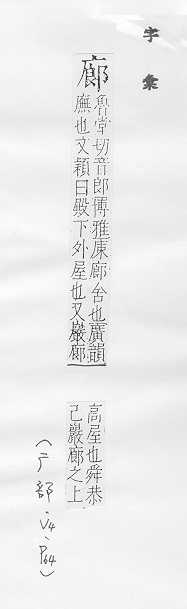 字彙
廊
魯堂切音郎博雅康廊舍也廣韻
廡也文穎曰殿下外屋也又巖廊
高屋也舜恭
己巖廊之上
(广部、V4、P64)